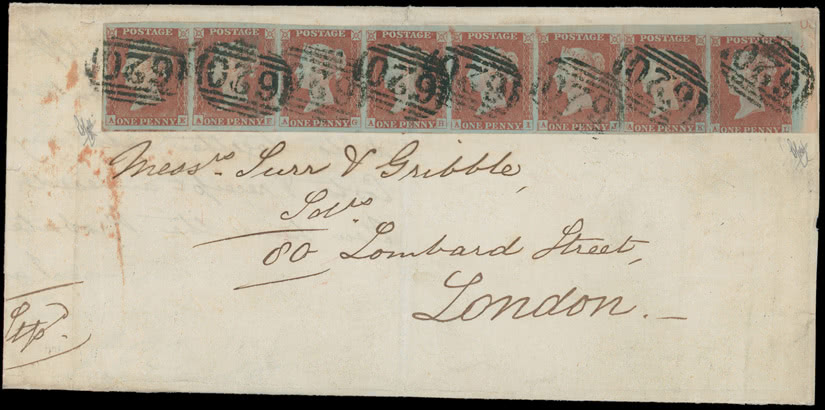 POSTAGE POSTAGE POSTAGE POSTAGE POSTAGE POSTAGE POSTAGE POSTAGE
620 620 620 620 620 620 620 620
A ONE PENNY E A ONE PENNY F A ONE PENNY G A ONE PENNY H A ONE PENNY I A ONE PENNY J A ONE PENNY K A ONE PENNY
Messrs. Surr & Gribble,
Solrs
80 Lombard Street,
London.